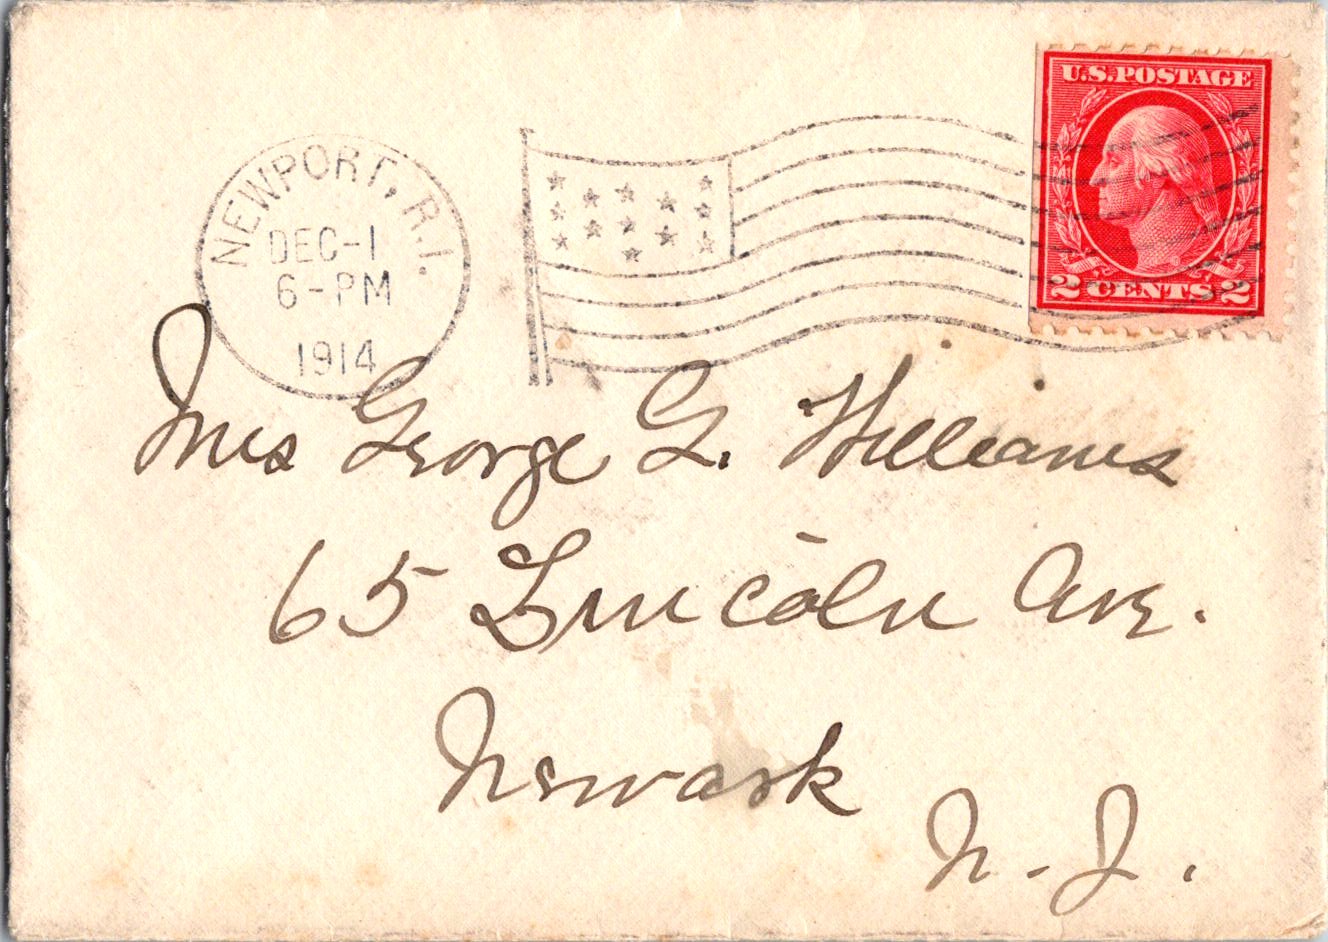 U.S. POSTAGE
2 CENTS 2
NEWPORT, R.I.
DEC-1
6-PM
1914
Mrs George G. Williams
65 Lincoln Ave.
Newark
N-J.